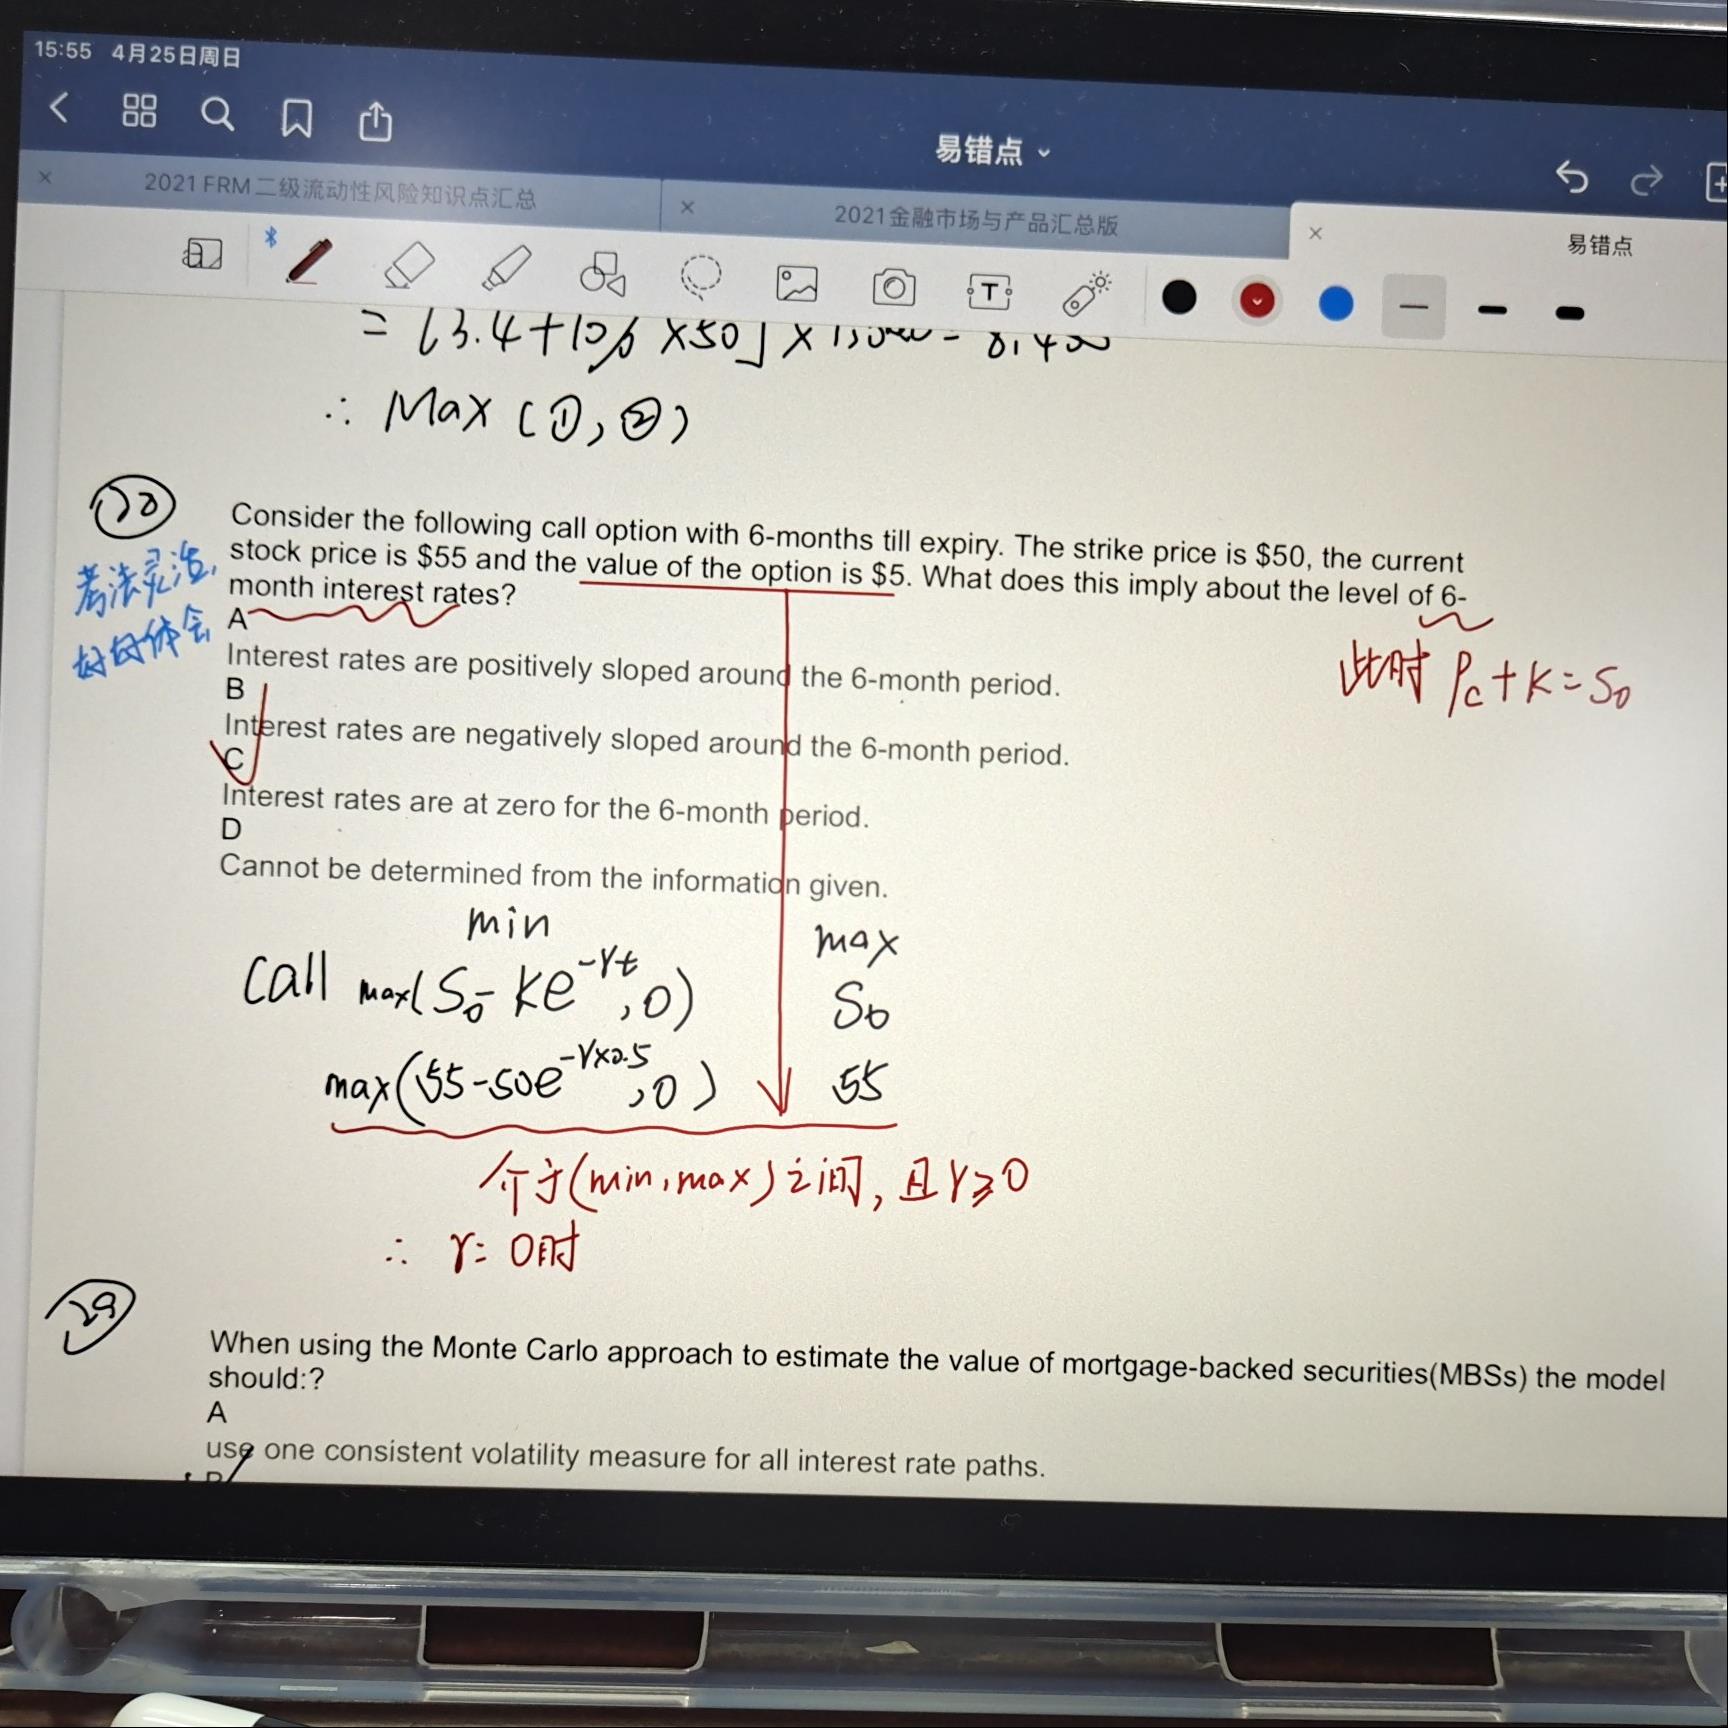 15:55 4月25日周日
易错点
2021 FRM二级流动性风险知识点汇总
2021金融市场与产品汇总版
易错点
= [3.4+10% ×50] ×
∴ Max (①,②)
Consider the following call option with 6-months till expiry. The strike price is $50, the current
stock price is $55 and the value of the option is $5. What does this imply about the level of 6-
month interest rates?
考法灵活,
好好体会
A
Interest rates are positively sloped around the 6-month period.
此时 Pc+K=S0
B
Interest rates are negatively sloped around the 6-month period.
C
Interest rates are at zero for the 6-month period.
D
Cannot be determined from the information given.
min max
Call max(S0-Ke^-rt,0) S0
max(55-50e^-r×0.5,0) 55
介于(min,max)之间,且r≥0
∴ r=0时
29
When using the Monte Carlo approach to estimate the value of mortgage-backed securities(MBSs) the model
should:?
A
use one consistent volatility measure for all interest rate paths.
B